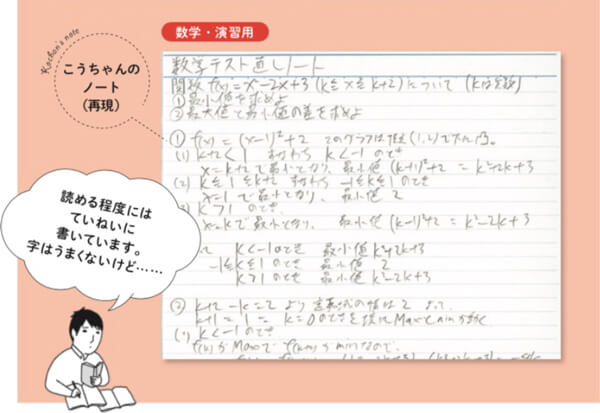 Kochan's note
こうちゃんの
ノート
(再現)
数学・演習用
数学テスト直しノート
関数 f(x)=x²-2x+3 (k≦x≦k+2)について (kは定数)
①最小値を求めよ
②最大値と最小値の差を求めよ
① f(x)=(x-1)²+2 このグラフは頂点(1,2)で下に凸。
(1) k+2<1 すなわち k<-1のとき
x=k+2で最小となり、最小値 (k+1)²+2 = k²+2k+3
(2) k≦1≦k+2 すなわち -1≦k≦1のとき
x=1で最小となり、最小値 2
(3) k>1のとき
x=kで最小となり、最小値 (k-1)²+2 = k²-2k+3
k<-1のとき 最小値 k²+2k+3
-1≦k≦1のとき 最小値 2
k>1のとき 最小値 k²-2k+3
② k+2-k=2 より 定義域の幅は2 よって、
k+1=1 = k=0のときを境にMaxとminが動く
(1) k<-1のとき
f(k)がMaxで f(k+2)がminなので、
読める程度には
ていねいに
書いています。
字はうまくないけど……